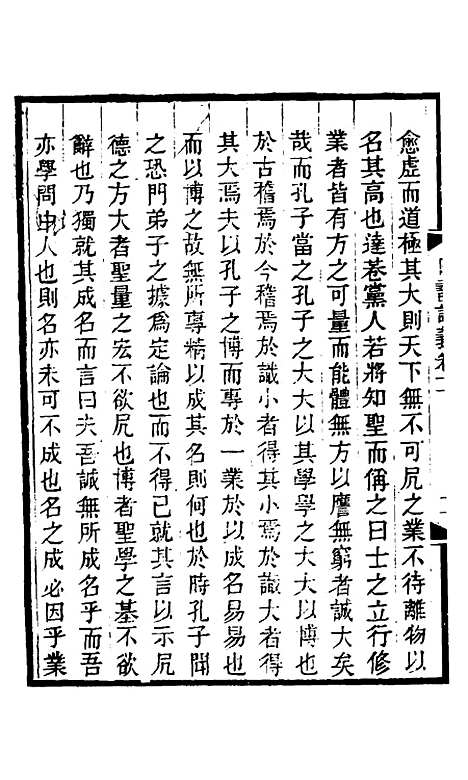 愈虛而道極其大則天下無不可尻之業不待離物以
名其高也達巷黨人若將知聖而偁之曰士之立行修
業者皆有方之可量而能體無方以譍無窮者誠大矣
哉而孔子當之孔子之大大以其學學之大大以博也
於古稽焉於今稽焉於識小者得其小焉於識大者得
其大焉夫以孔子之博而專於一業於以成名易易也
而以博之故無所專精以成其名則何也於時孔子聞
之恐門弟子之據爲定論也而不得已就其言以示尻
德之方大者聖量之宏不欲尻也博者聖學之基不欲
辭也乃獨就其成名而言曰夫吾誠無所成名乎而吾
亦學問中人也則名亦未可不成也名之成必因乎業
四書訓義卷十